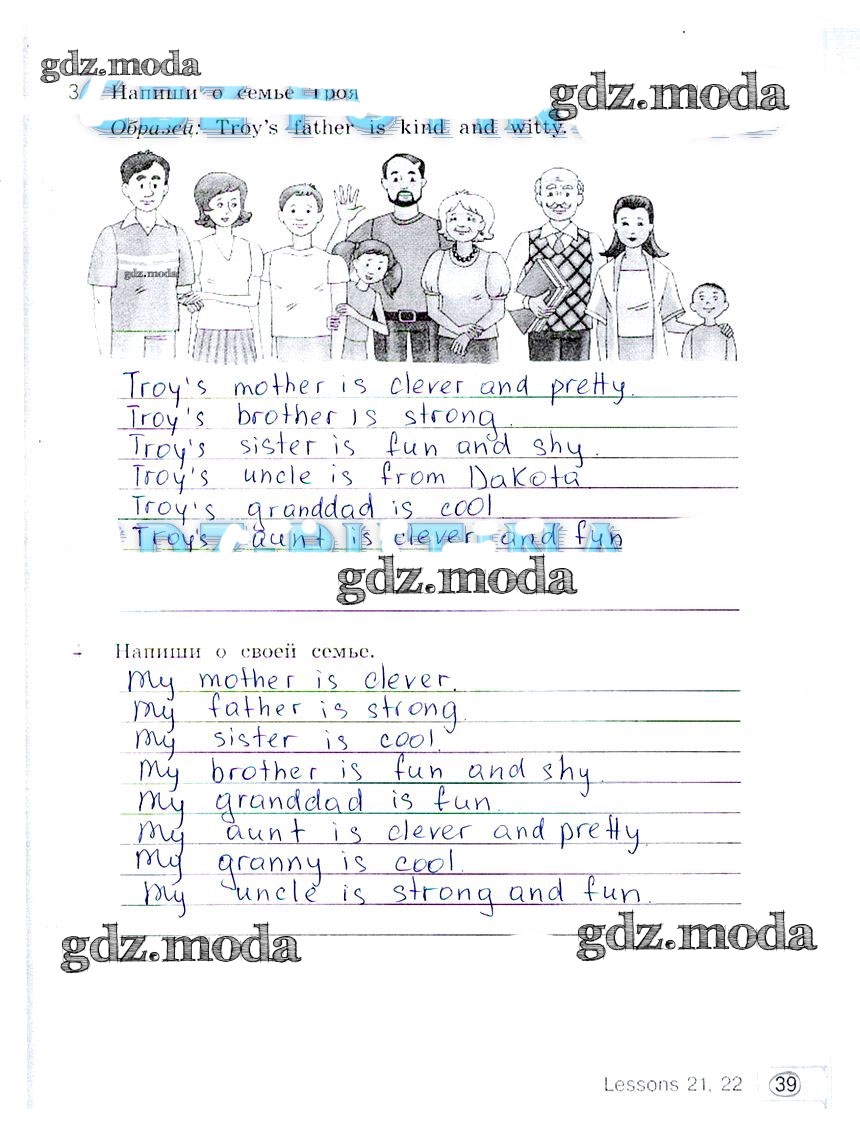 gdz.moda
gdz.moda
3 Напиши о семье Троя
Образец: Troy's father is kind and witty.
gdz.moda
Troy's mother is clever and pretty.
Troy's brother is strong.
Troy's sister is fun and shy.
Troy's uncle is from Dakota
Troy's granddad is cool
Troy's aunt is clever and fun
gdz.moda
Напиши о своей семье.
My mother is clever.
My father is strong.
My sister is cool.
My brother is fun and shy.
My granddad is fun.
My aunt is clever and pretty.
My granny is cool.
My uncle is strong and fun.
gdz.moda
gdz.moda
Lessons 21, 22
39